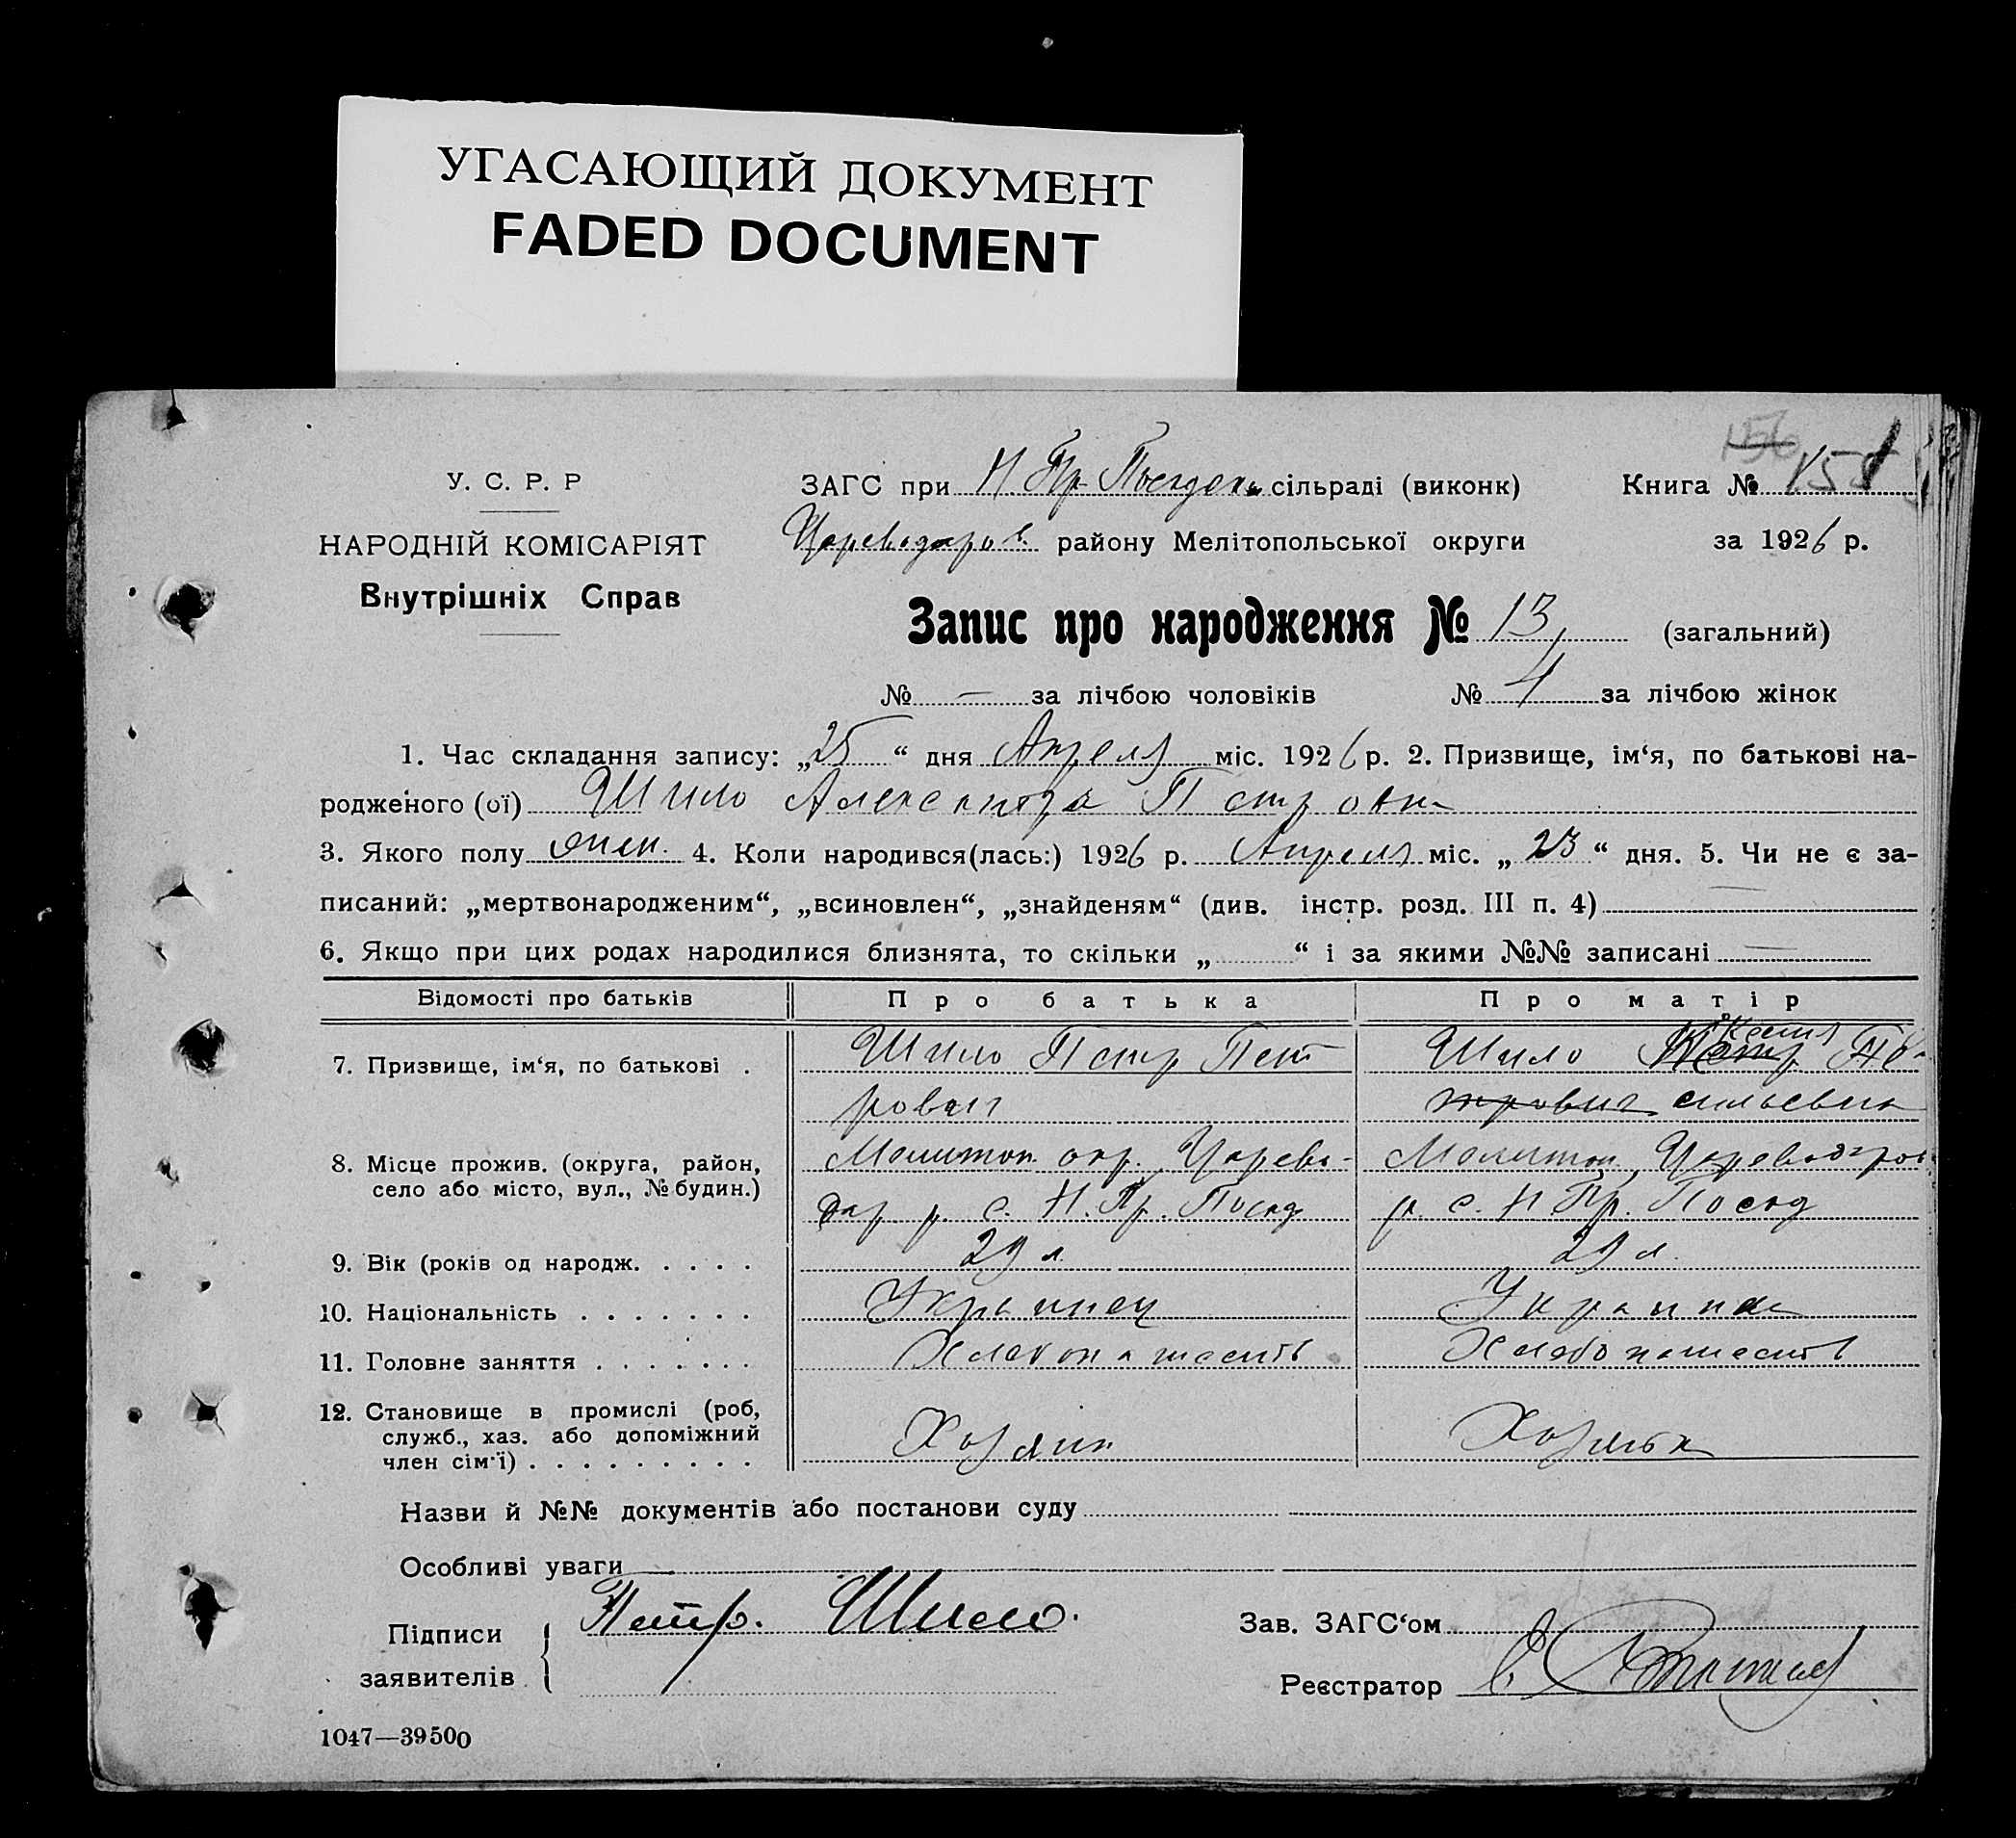 УГАСАЮЩИЙ ДОКУМЕНТ
FADED DOCUMENT
156
У. С. Р. Р
НАРОДНІЙ КОМІСАРІЯТ
Внутрішніх Справ
ЗАГС при Н Пр. сільраді (виконк) Книга №
району Мелітопольської округи за 1926 р.
Запис про народження № 13 (загальний)
№ — за лічбою чоловіків № 4 за лічбою жінок
1. Час складання запису: „25“ дня Апреля міс. 1926 р. 2. Призвище, ім‘я, по батькові на-
родженого (ої) Шило Александра Петровна
3. Якого полу жен. 4. Коли народився(лась:) 1926 р. Апреля міс. „23“ дня. 5. Чи не є за-
писаний: „мертвонародженим“, „всиновлен“, „знайденям“ (див. інстр. розд. III п. 4) —
6. Якщо при цих родах народилися близнята, то скільки „ “ і за якими №№ записані —
Відомості про батьків Про батька Про матір
7. Призвище, ім‘я, по батькові . Шило Петр Пет Шило
рович сильевна
8. Місце прожив. (округа, район, Мелитоп. окр. Царево- Мелитоп,
село або місто, вул., № будин.) дар р. с. Н. Пр. Посад р. с. Н Пр. Посад
9. Вік (років од народж. . . . . 29 л. 29 л.
10. Національність . . . . . . . Украинец Украинка
11. Головне заняття . . . . . . . Хлебопашест Хлебопашест
12. Становище в промислі (роб,
служб., хаз. або допоміжний Хозяин Хозяйка
член сім‘ї) . . . . . . . . .
Назви й №№ документів або постанови суду
Особливі уваги
Підписи Петр. Шило. Зав. ЗАГС‘ом
заявителів Реєстратор
1047—39500